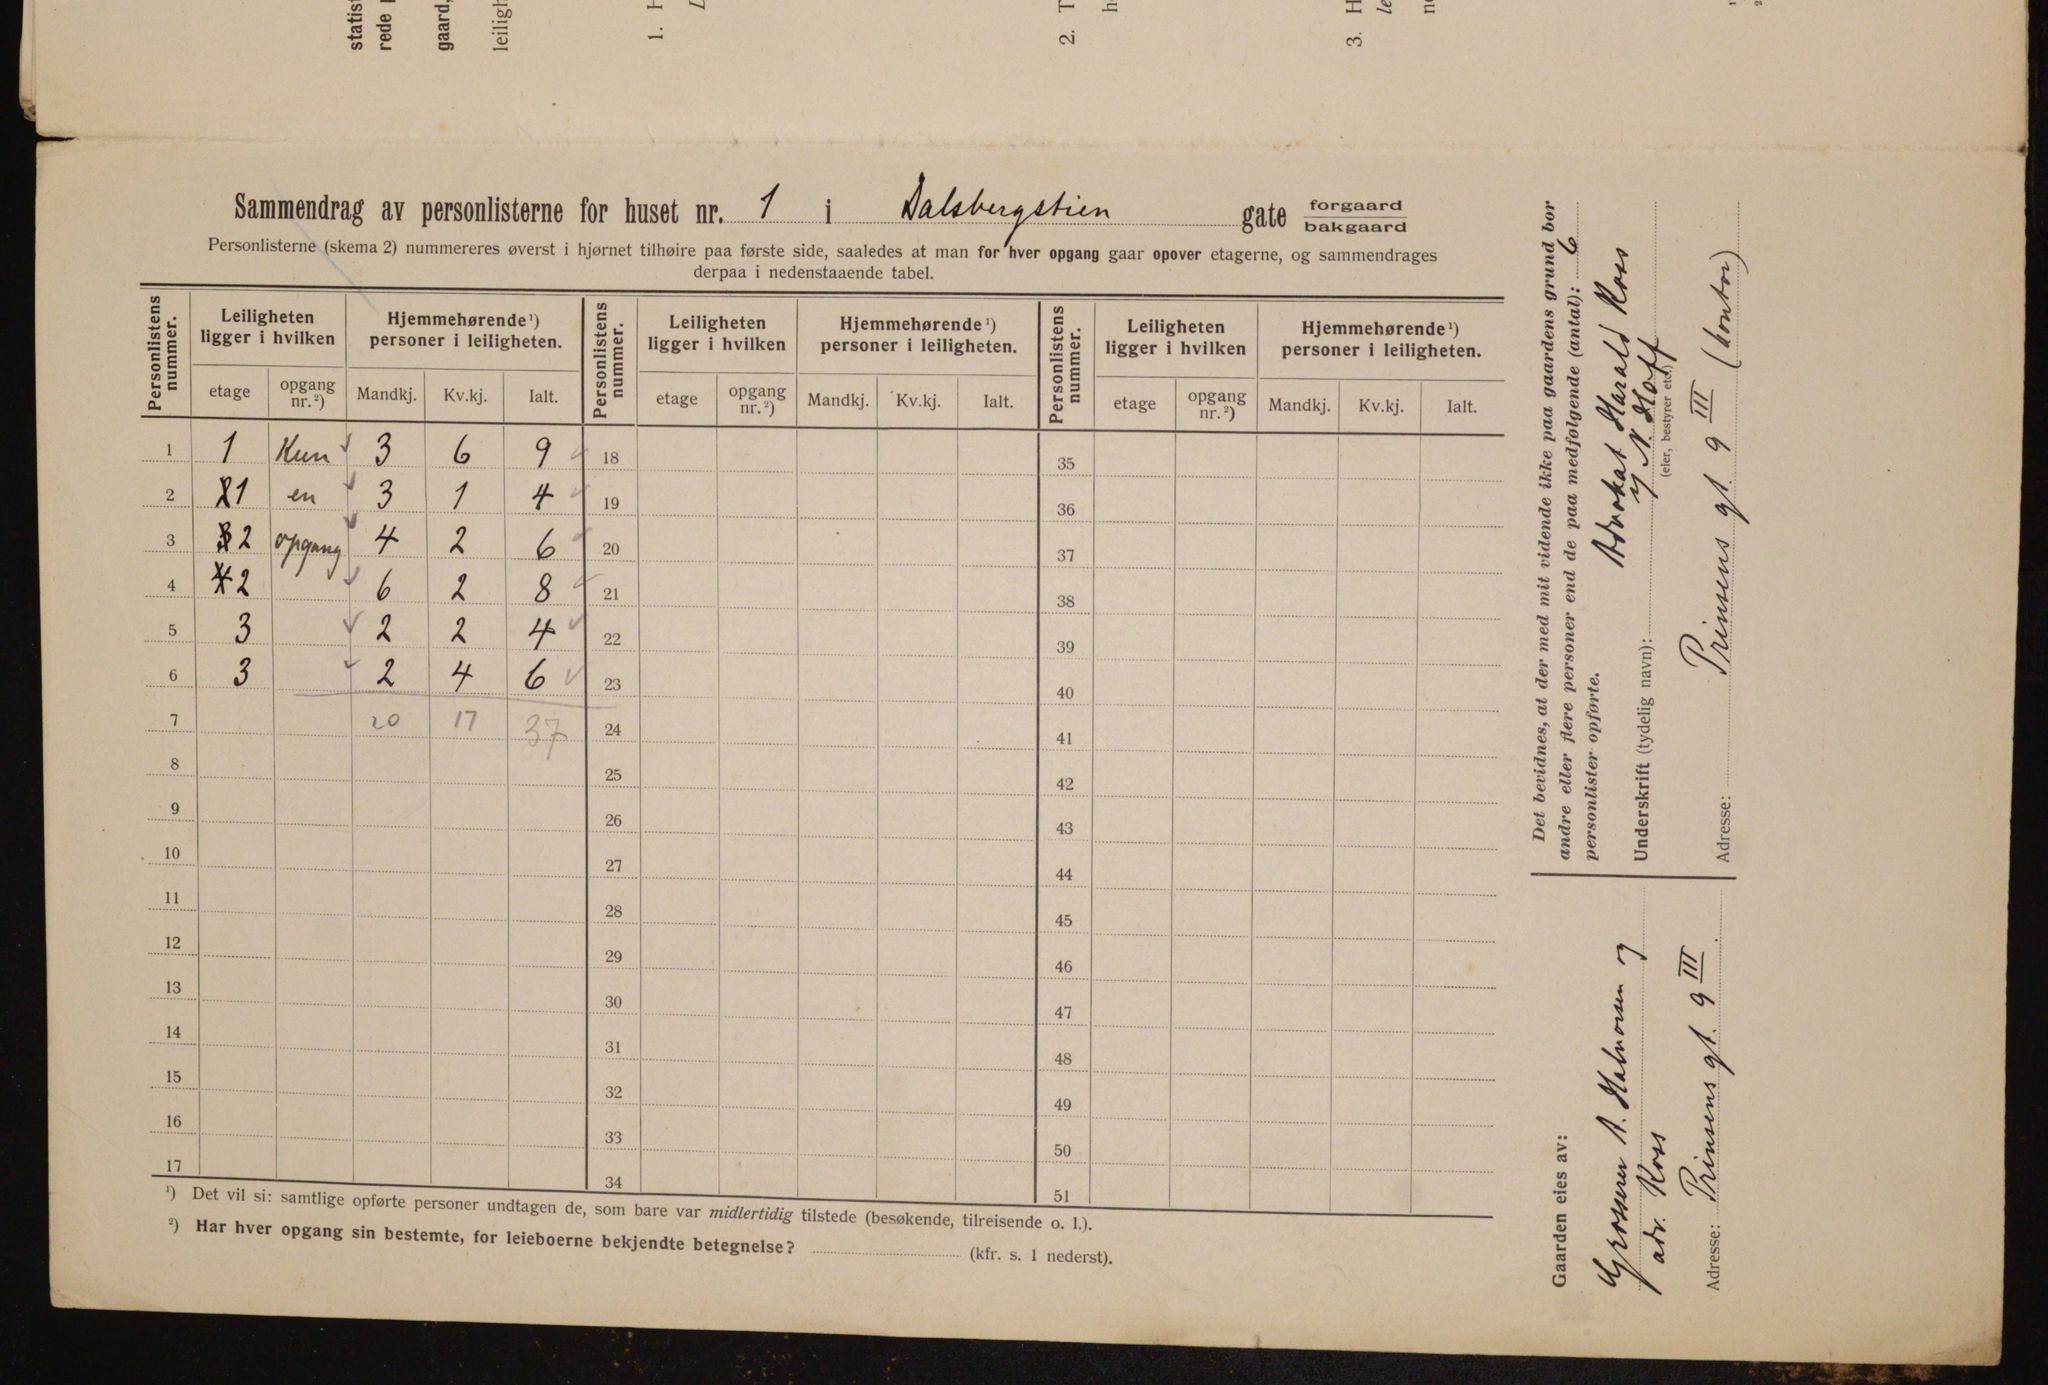 statist
rede
gaard,
leiligh
1. H
L
2. T
h
3. H
le
n
Sammendrag av personlisterne for huset nr. 1 i Dalsbergstien gate forgaard
bakgaard
Personlisterne (skema 2) nummereres øverst i hjørnet tilhøire paa første side, saaledes at man for hver opgang gaar opover etagerne, og sammendrages
derpaa i nedenstaaende tabel.
Personlistens nummer. Leiligheten ligger i hvilken Hjemmehørende ¹) personer i leiligheten. Personlistens nummer. Leiligheten ligger i hvilken Hjemmehørende ¹) personer i leiligheten. Personlistens nummer. Leiligheten ligger i hvilken Hjemmehørende ¹) personer i leiligheten.
etage opgang nr. ²) Mandkj. Kv.kj. Ialt. etage opgang nr. ²) Mandkj. Kv.kj. Ialt. etage opgang nr. ²) Mandkj. Kv.kj. Ialt.
1 1 Kun 3 6 9 18 35
2 1 en 3 1 4 19 36
3 2 opgang 4 2 6 20 37
4 2 6 2 8 21 38
5 3 2 2 4 22 39
6 3 2 4 6 23 40
7 20 17 37 24 41
8 25 42
9 26 43
10 27 44
11 28 45
12 29 46
13 30 47
14 31 48
15 32 49
16 33 50
17 34 51
¹) Det vil si: samtlige opførte personer undtagen de, som bare var midlertidig tilstede (besøkende, tilreisende o. l.).
²) Har hver opgang sin bestemte, for leieboerne bekjendte betegnelse? (kfr. s. 1 nederst).
Det bevidnes, at der med mit vidende ikke paa gaardens grund bor
andre eller flere personer end de paa medfølgende (antal): 6
personlister opførte.
Advokat Harald Ross
Underskrift (tydelig navn): N. Hoff
(eier, bestyrer etc.)
Adresse: Prinsens gt. 9 III (kontor)
Gaarden eies av:
Grosserer A. Halvorsen og
adv. Ross
Adresse: Prinsens gt. 9 III